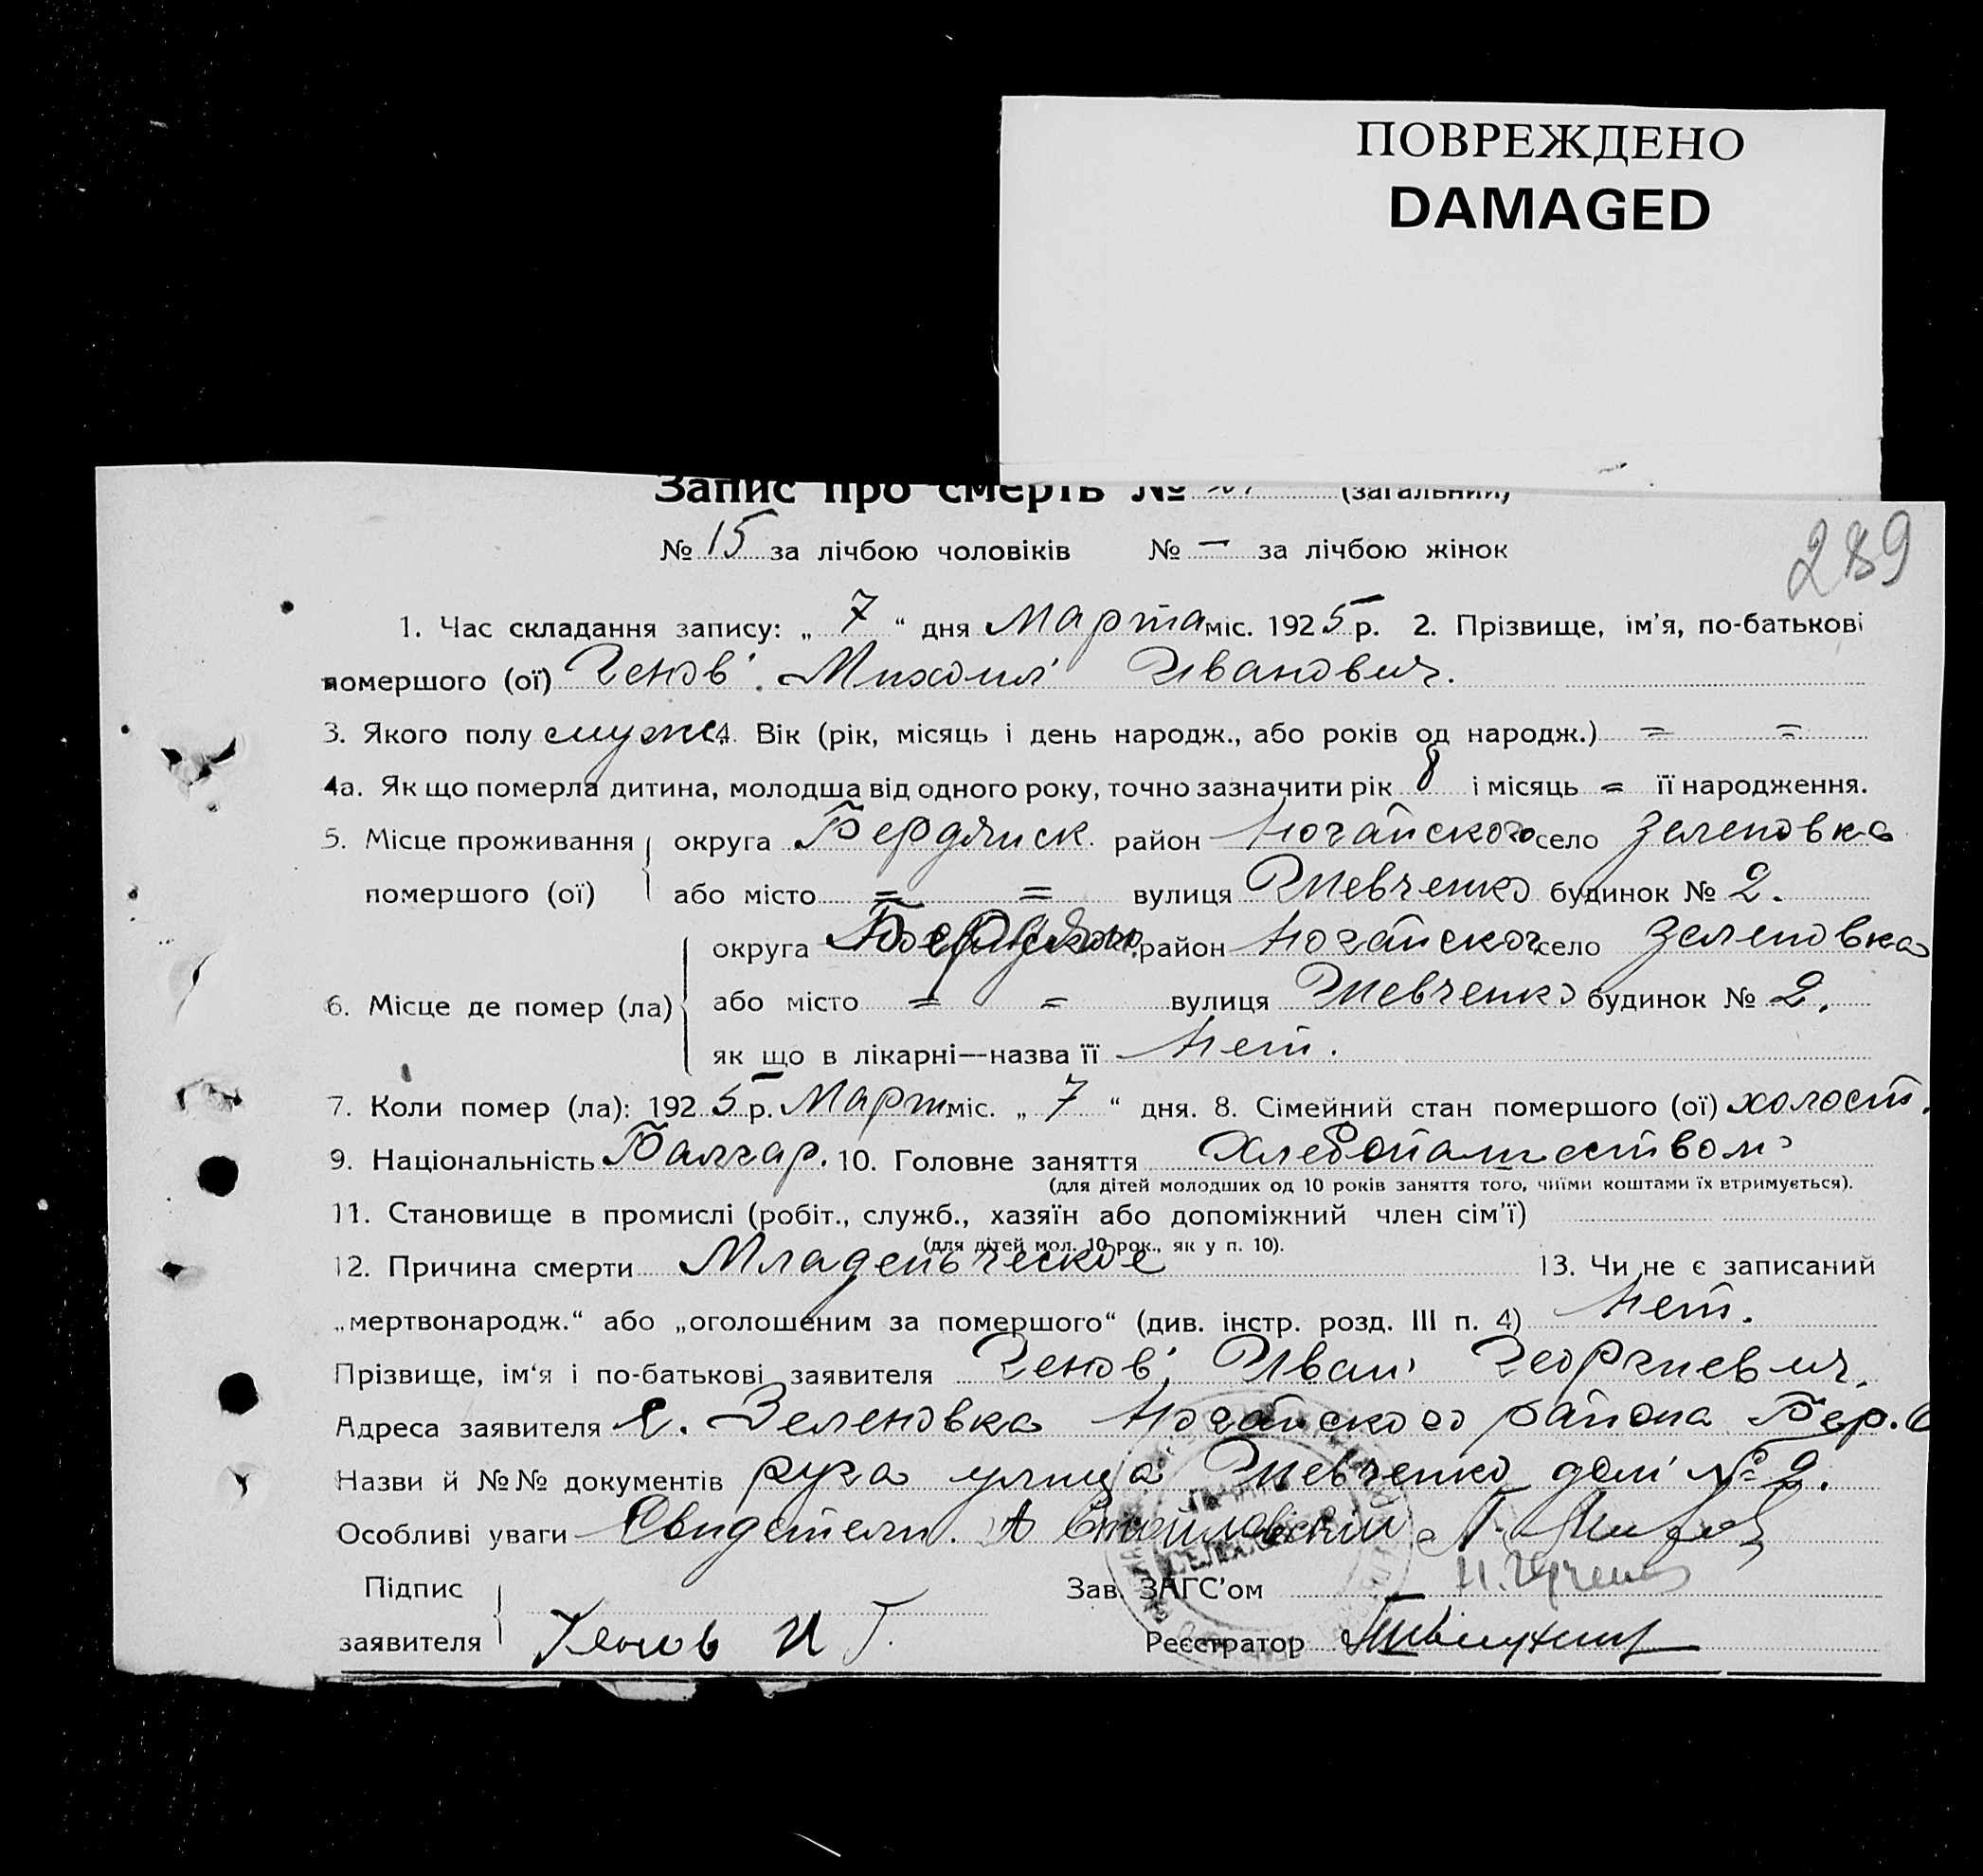 ПОВРЕЖДЕНО
DAMAGED
Запис про смерть № (загальний)
№ 15 за лічбою чоловіків № — за лічбою жінок
289
1. Час складання запису: „ 7 “ дня Марта міс. 1925 р. 2. Прізвище, ім'я, по-батькові
помершого (ої) Генов Михаил Иванович.
3. Якого полу мужс 4. Вік (рік, місяць і день народж., або років од народж.) = =
4а. Як що померла дитина, молодша від одного року, точно зазначити рік 8 і місяць = її народження.
5. Місце проживання округа Бердянск. район Ногайского село Зеленовка
помершого (ої) або місто = = вулиця Шевченко будинок № 2.
округа район Ногайского село Зеленовка
6. Місце де помер (ла) або місто = = вулиця Шевченко будинок № 2.
як що в лікарні—назва її Нет.
7. Коли помер (ла): 1925 р. Март міс. „ 7 “ дня. 8. Сімейний стан помершого (ої) холост.
9. Національність Балгар. 10. Головне заняття Хлебопашеством
(для дітей молодших од 10 років заняття того, чиїми коштами їх втримується).
11. Становище в промислі (робіт., служб., хазяїн або допоміжний член сім'ї)
(для дітей мол. 10 рок., як у п. 10).
12. Причина смерти Младенческое 13. Чи не є записаний
„мертвонародж.“ або „оголошеним за помершого“ (див. інстр. розд. III п. 4) Нет.
Прізвище, ім‘я і по-батькові заявителя Генов Иван Георгиевич.
Адреса заявителя с. Зеленовка Ногайского района Бер. О
Назви й №№ документів руга улица Шевченко дом № 2.
Особливі уваги Свидетели. А
Підпис Зав. ЗАГС'ом
заявителя Генов И Г. Реєстратор